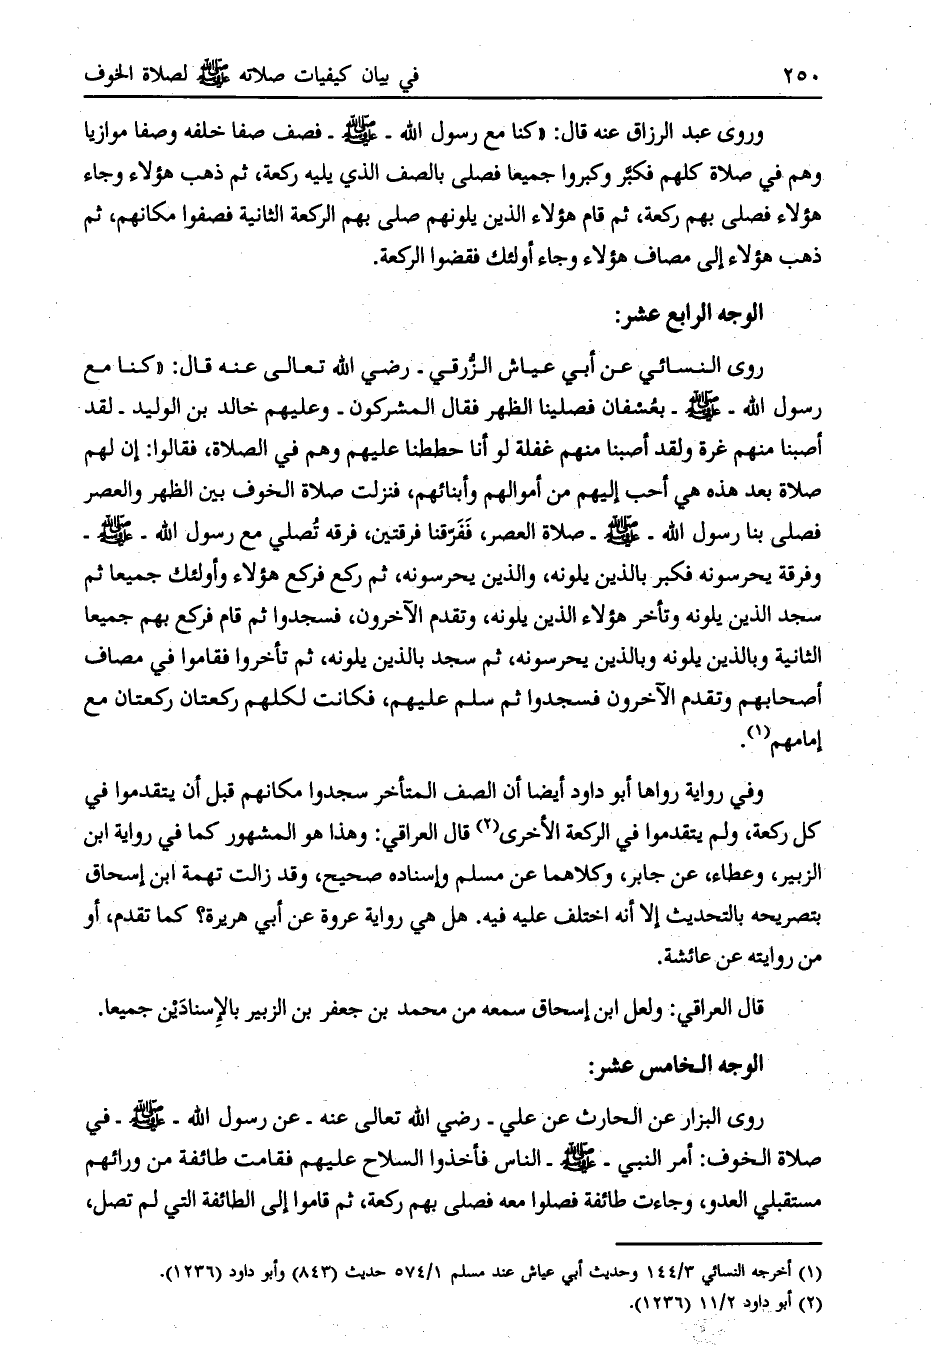 ٢٥٠ في بيان كيفيات صلاته ﷺ لصلاة الخوف
وروى عبد الرزاق عنه قال: «كنا مع رسول الله ـ ﷺ ـ فصف صفا خلفه وصفا موازيا
وهم في صلاة كلهم فكبَّر وكبروا جميعا فصلى بالصف الذي يليه ركعة، ثم ذهب هؤلاء وجاء
هؤلاء فصلى بهم ركعة، ثم قام هؤلاء الذين يلونهم صلى بهم الركعة الثانية فصفوا مكانهم، ثم
ذهب هؤلاء إلى مصاف هؤلاء وجاء أولئك فقضوا الركعة.
الوجه الرابع عشر:
روى النسائي عن أبي عياش الزُّرقي ـ رضي الله تعالى عنه قال: «كنا مع
رسول الله ـ ﷺ ـ بعُسْفان فصلينا الظهر فقال المشركون ـ وعليهم خالد بن الوليد ـ لقد
أصبنا منهم غرة ولقد أصبنا منهم غفلة لو أنا حططنا عليهم وهم في الصلاة، فقالوا: إن لهم
صلاة بعد هذه هي أحب إليهم من أموالهم وأبنائهم، فنزلت صلاة الخوف بين الظهر والعصر
فصلى بنا رسول الله ـ ﷺ ـ صلاة العصر، فَفَرّقنا فرقتين، فرقه تُصلي مع رسول الله ـ ﷺ ـ
وفرقة يحرسونه فكبر بالذين يلونه، والذين يحرسونه، ثم ركع فركع هؤلاء وأولئك جميعا ثم
سجد الذين يلونه وتأخر هؤلاء الذين يلونه، وتقدم الآخرون، فسجدوا ثم قام فركع بهم جميعا
الثانية وبالذين يلونه وبالذين يحرسونه، ثم سجد بالذين يلونه، ثم تأخروا فقاموا في مصاف
أصحابهم وتقدم الآخرون فسجدوا ثم سلم عليهم، فكانت لكلهم ركعتان ركعتان مع
إمامهم(١).
وفي رواية رواها أبو داود أيضا أن الصف المتأخر سجدوا مكانهم قبل أن يتقدموا في
كل ركعة، ولم يتقدموا في الركعة الأخرى(٢) قال العراقي: وهذا هو المشهور كما في رواية ابن
الزبير، وعطاء، عن جابر، وكلاهما عن مسلم وإسناده صحيح، وقد زالت تهمة ابن إسحاق
بتصريحه بالتحديث إلا أنه اختلف عليه فيه. هل هي رواية عروة عن أبي هريرة؟ كما تقدم، أو
من روايته عن عائشة.
قال العراقي: ولعل ابن إسحاق سمعه من محمد بن جعفر بن الزبير بالإِسنادَيْن جميعا.
الوجه الخامس عشر:
روى البزار عن الحارث عن علي ـ رضي الله تعالى عنه ـ عن رسول الله ـ ﷺ ـ في
صلاة الخوف: أمر النبي ـ ﷺ ـ الناس فأخذوا السلاح عليهم فقامت طائفة من ورائهم
مستقبلي العدو، وجاءت طائفة فصلوا معه فصلى بهم ركعة، ثم قاموا إلى الطائفة التي لم تصل،
(١) أخرجه النسائي ١٤٤/٣ وحديث أبي عياش عند مسلم ٥٧٤/١ حديث (٨٤٣) وأبو داود (١٢٣٦).
(٢) أبو داود ١١/٢ (١٢٣٦).